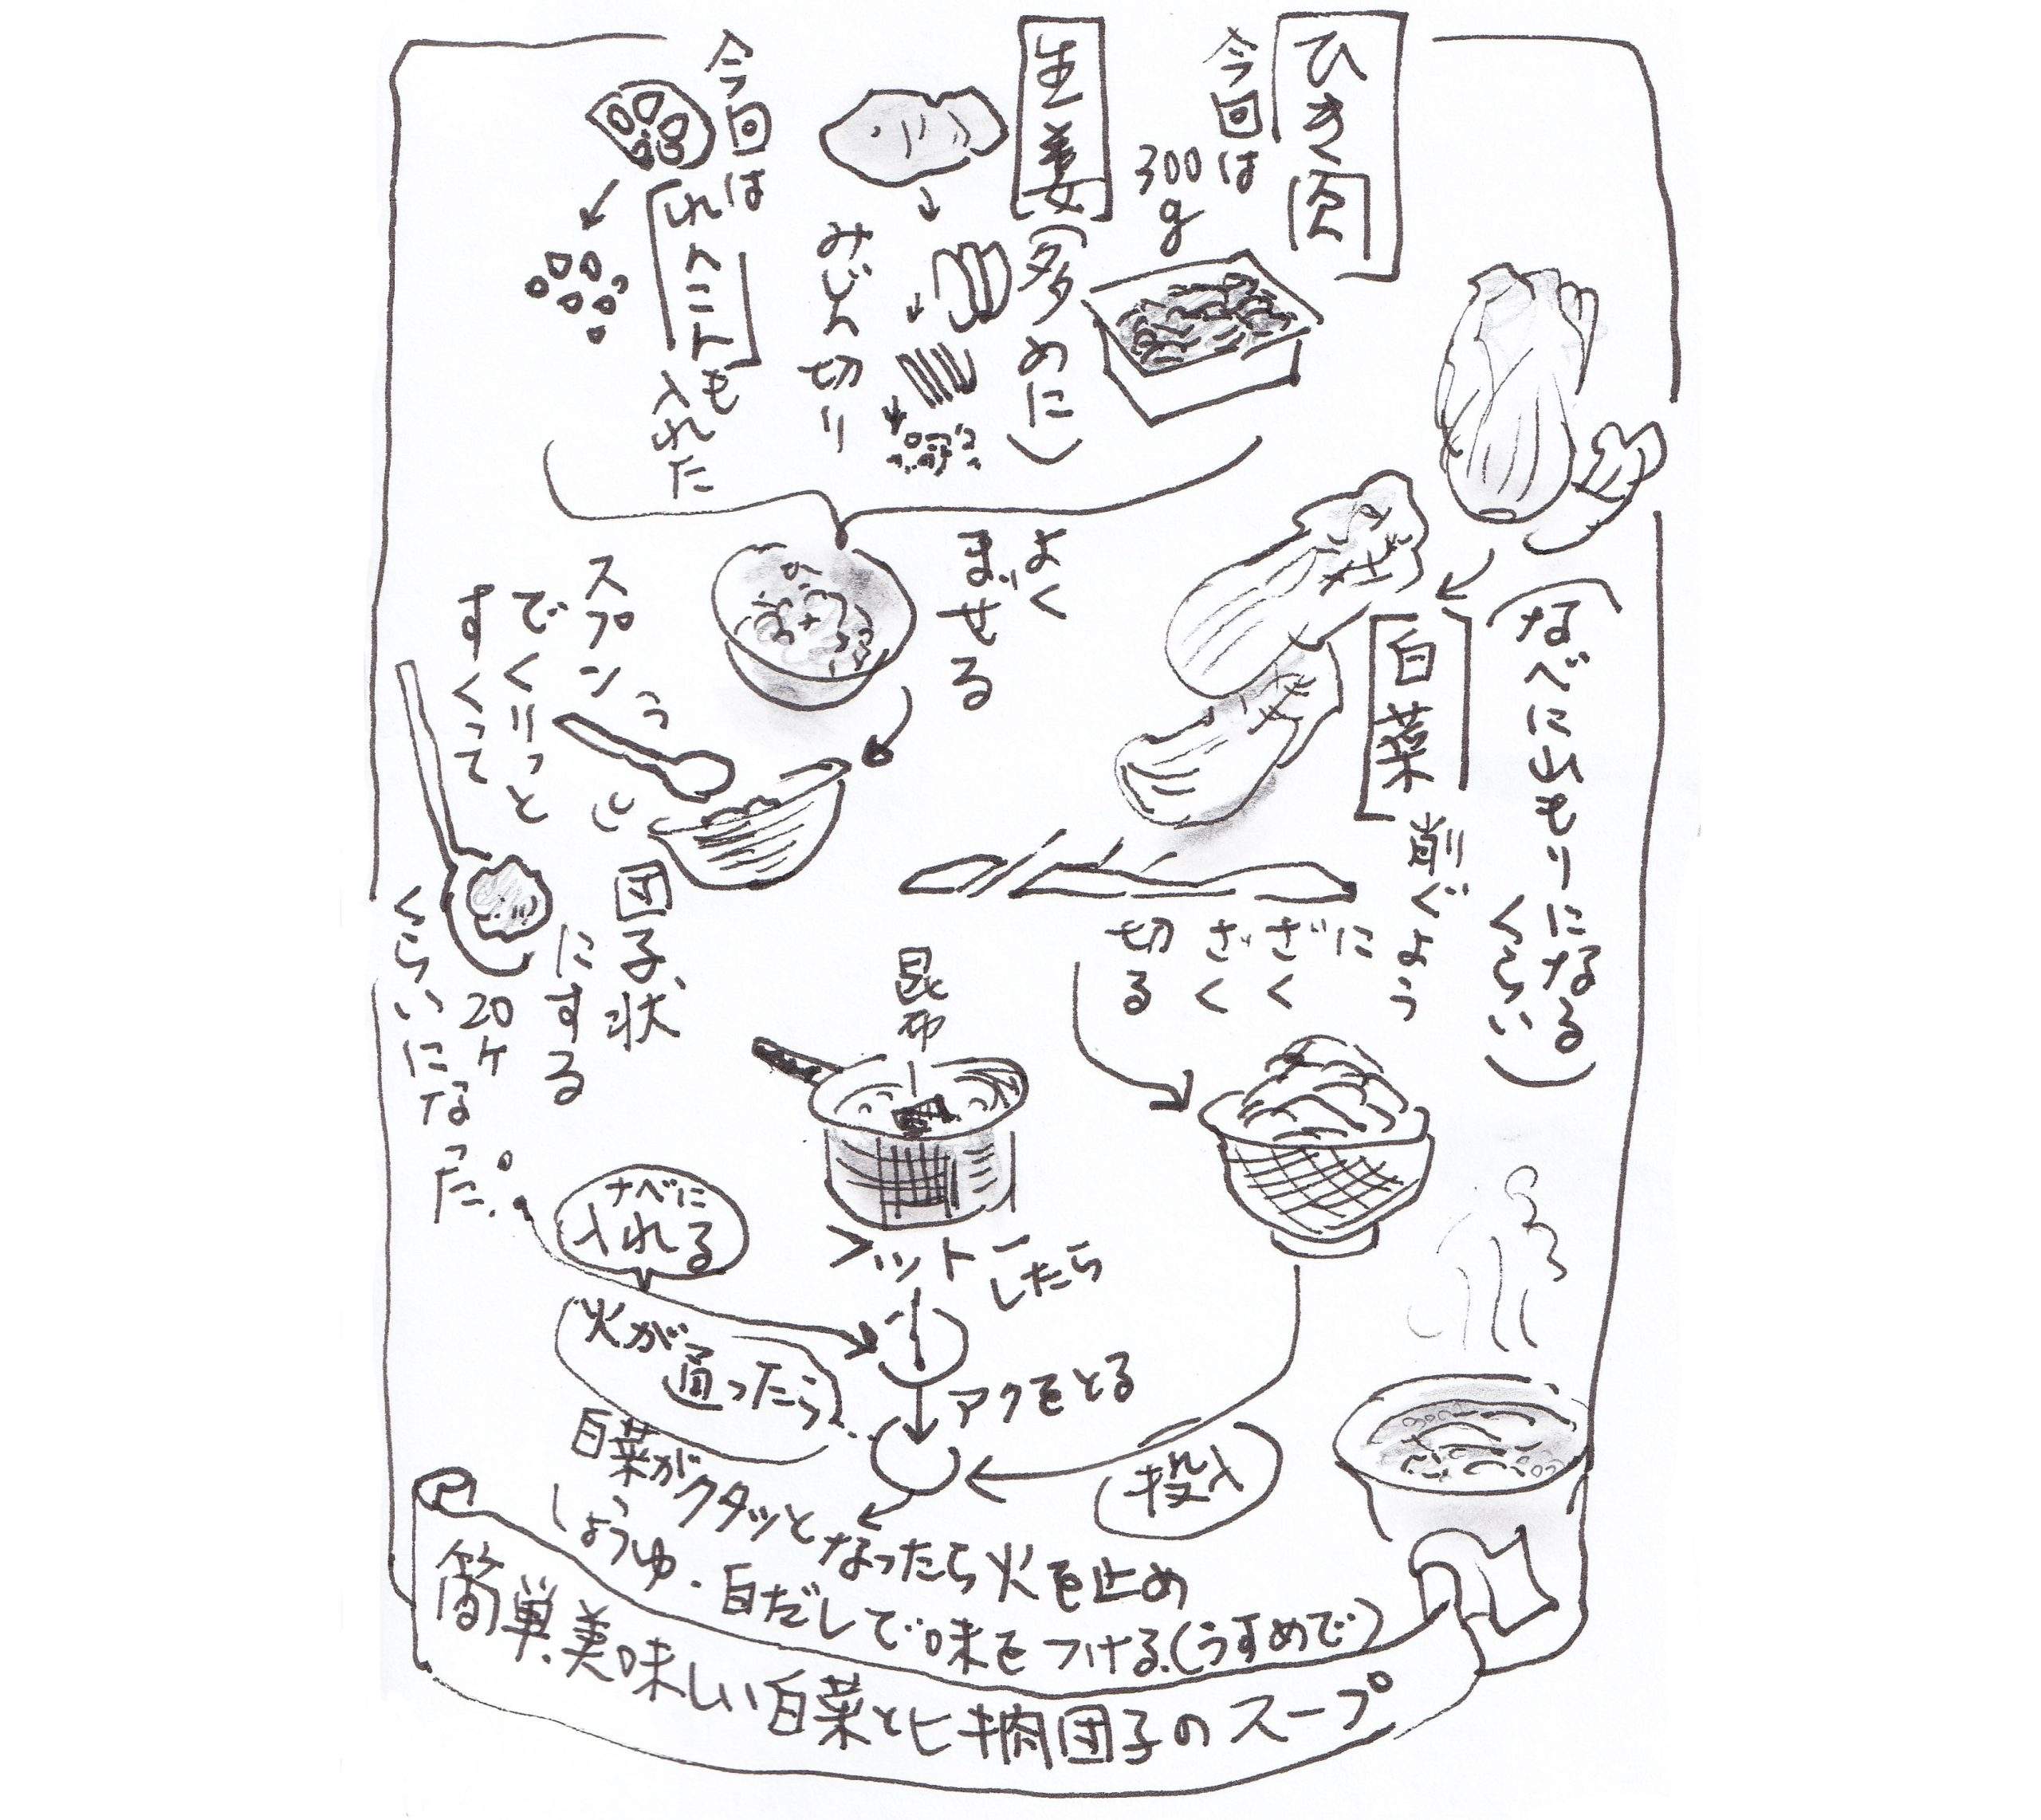 ひき肉
今回は
300
g
生姜
(多めに)
みじん切り
今回は
「れんこん」も
入れた
よく
まぜる
スプーン
でくりっと
すくって
団子状
にする
20ケ
くらいになった。
(なべに山もりになる
くらい)
白菜
削ぐよう
に
ざく
ざく
切る
昆布
フットーしたら
ナベに
入れる
アクをとる
火が
通ったら
投入
白菜がクタッとなったら火を止め
しょうゆ・白だしで味をつける。(うすめで)
簡単美味しい白菜とヒキ肉団子のスープ